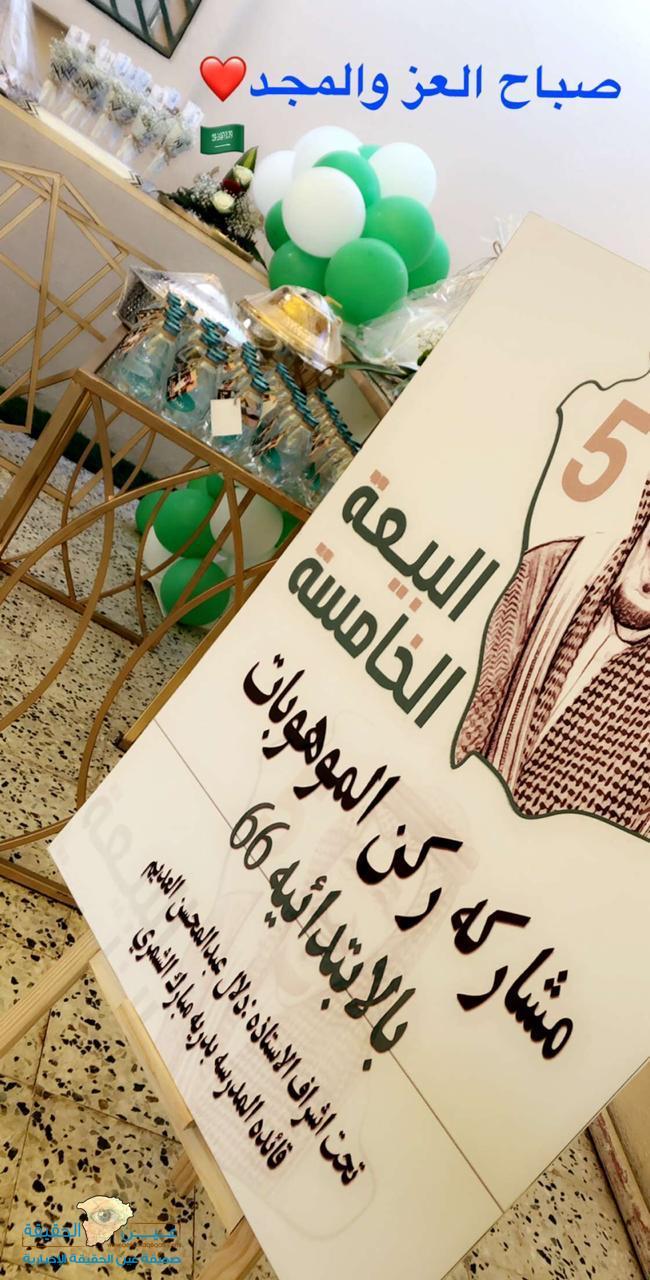 صباح العز والمجد❤️
🇸🇦
5
البيعة
الخامسة
مشاركه ركن الموهوبات
بالابتدائيه 66
تحت اشراف الاستاذه :دلال عبدالمحسن العديم
قائده المدرسه بدريه مبارك الشمري
عين الحقيقة
صحيفة عين الحقيقة الإخبارية